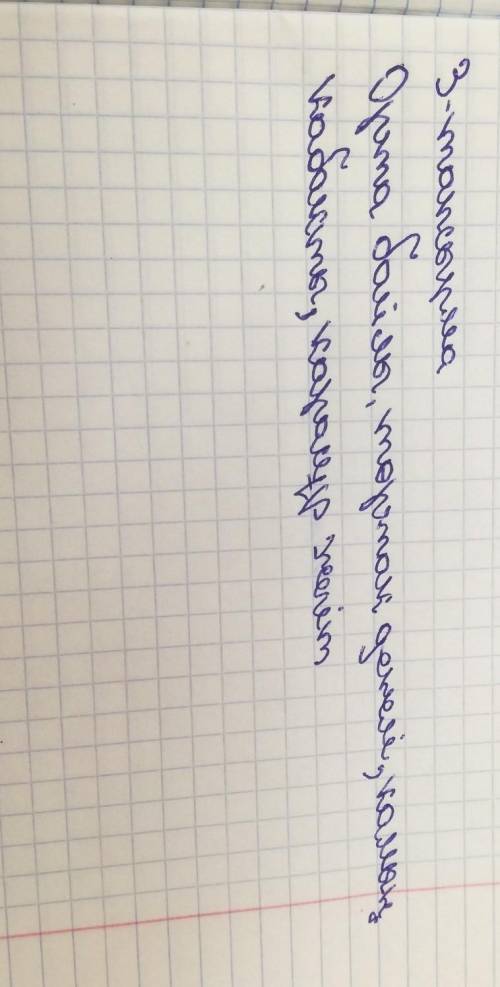 3-тапсырма
Орта бойлы, тартпақ денелі, қалың
қабақты, қараңғы жігіт